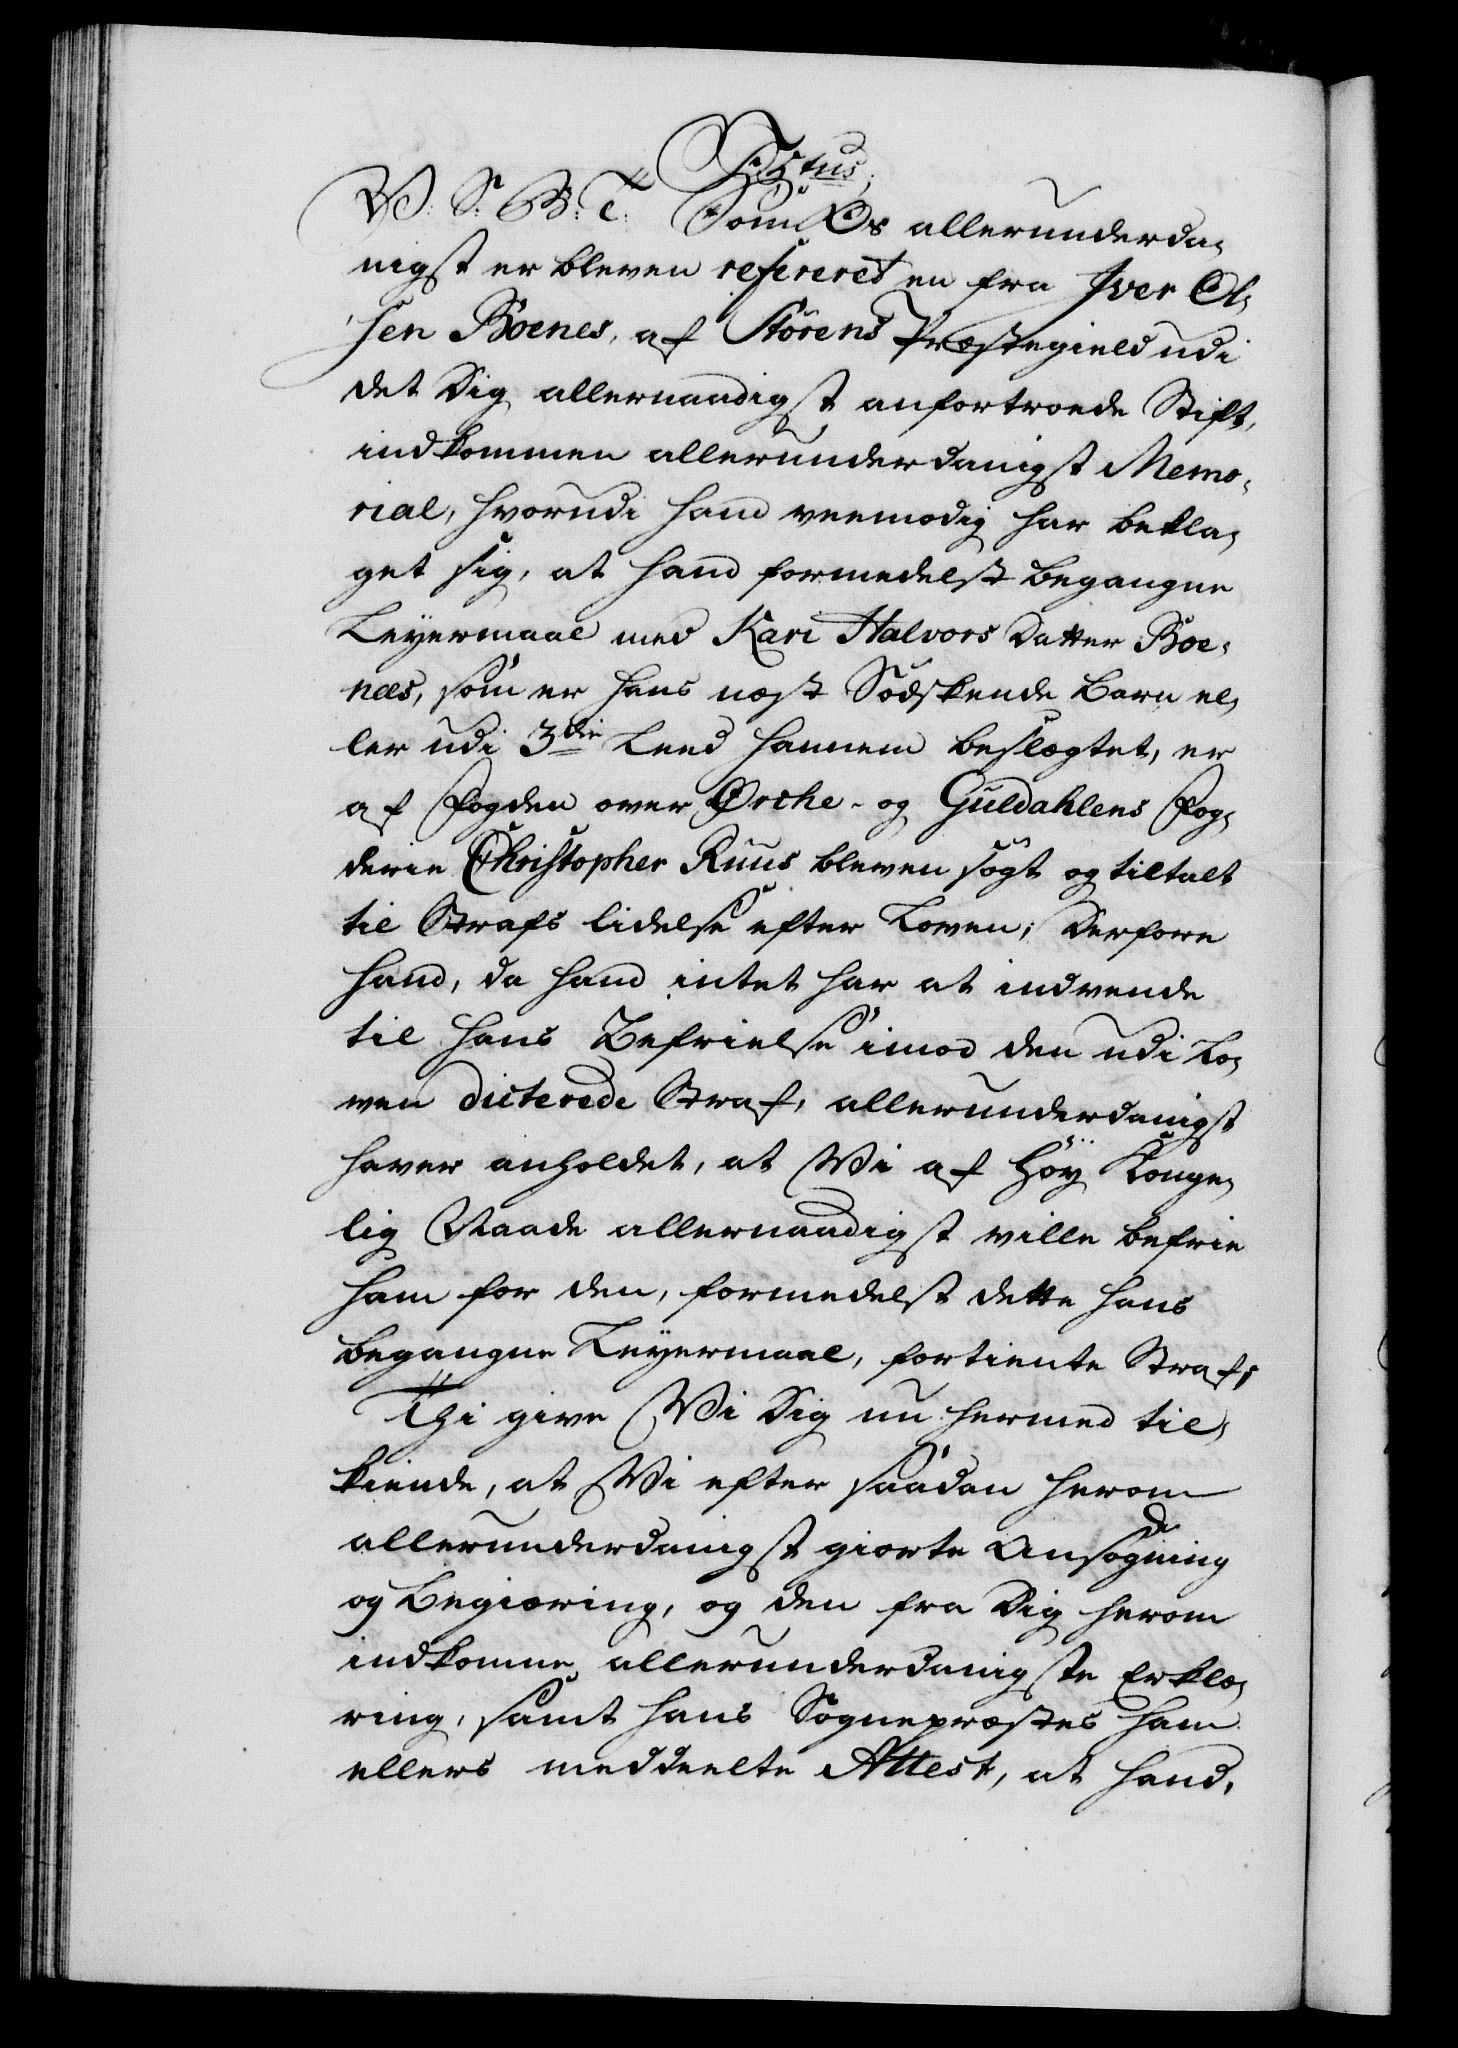 Titus;
V: S: G: T: Som Os allerunderda,
nigst er bleven refereret en fra Iver Ol,
sen Boenes, af Störens Præstegield udi
det Dig allernaadigst anfortroede Stift,
indkommen allerunderdanigst Memo,
rial, hvorudi hand veemodig har bekla,
get sig, at hand formedelst begangne
Leyermaal med Kari Halvors Datter Boe,
næs, som er hans næst Södskende Barn el,
ler udi 3die Leed hannem beslægtet, er
af Fogden over Ørche- og Guldahlens Fog,
derie Christopher Ruus bleven søgt og tiltalt
til Strafs lidelse efter Loven; Derfore
hand, da hand intet har at indvende
til hans Befrielse imod den udi Lo,
ven dicterede Straf, allerunderdanigst
haver anholdet, at Vi af Höy Konge,
lig Naade allernaadigst ville befrie
ham for den, formedelst dette hans
begangne Leyermaal, fortiente Straf;
Thi give Vi Dig nu hermed til,
kiende, at Vi efter saadan herom
allerunderdanigst giorte Ansøgning
og Begiæring, og den fra Dig herom
indkomne allerunderdanigste Erklæ,
ring, samt hans Sognepræstes ham
ellers meddeelte Attest, at hand,